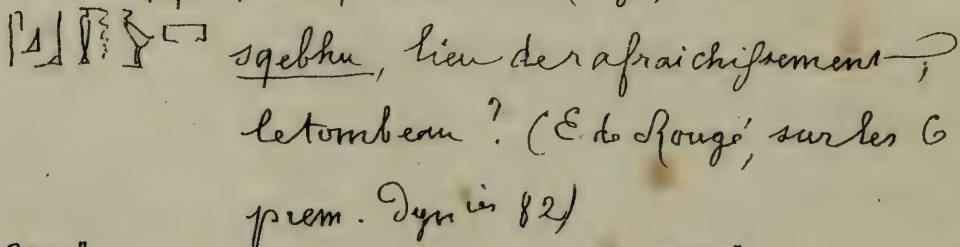 sqebhu, lieu de rafraichissement,
le tombeau ? (E. de Rougé, sur les 6
prem. Dyn ies 82)